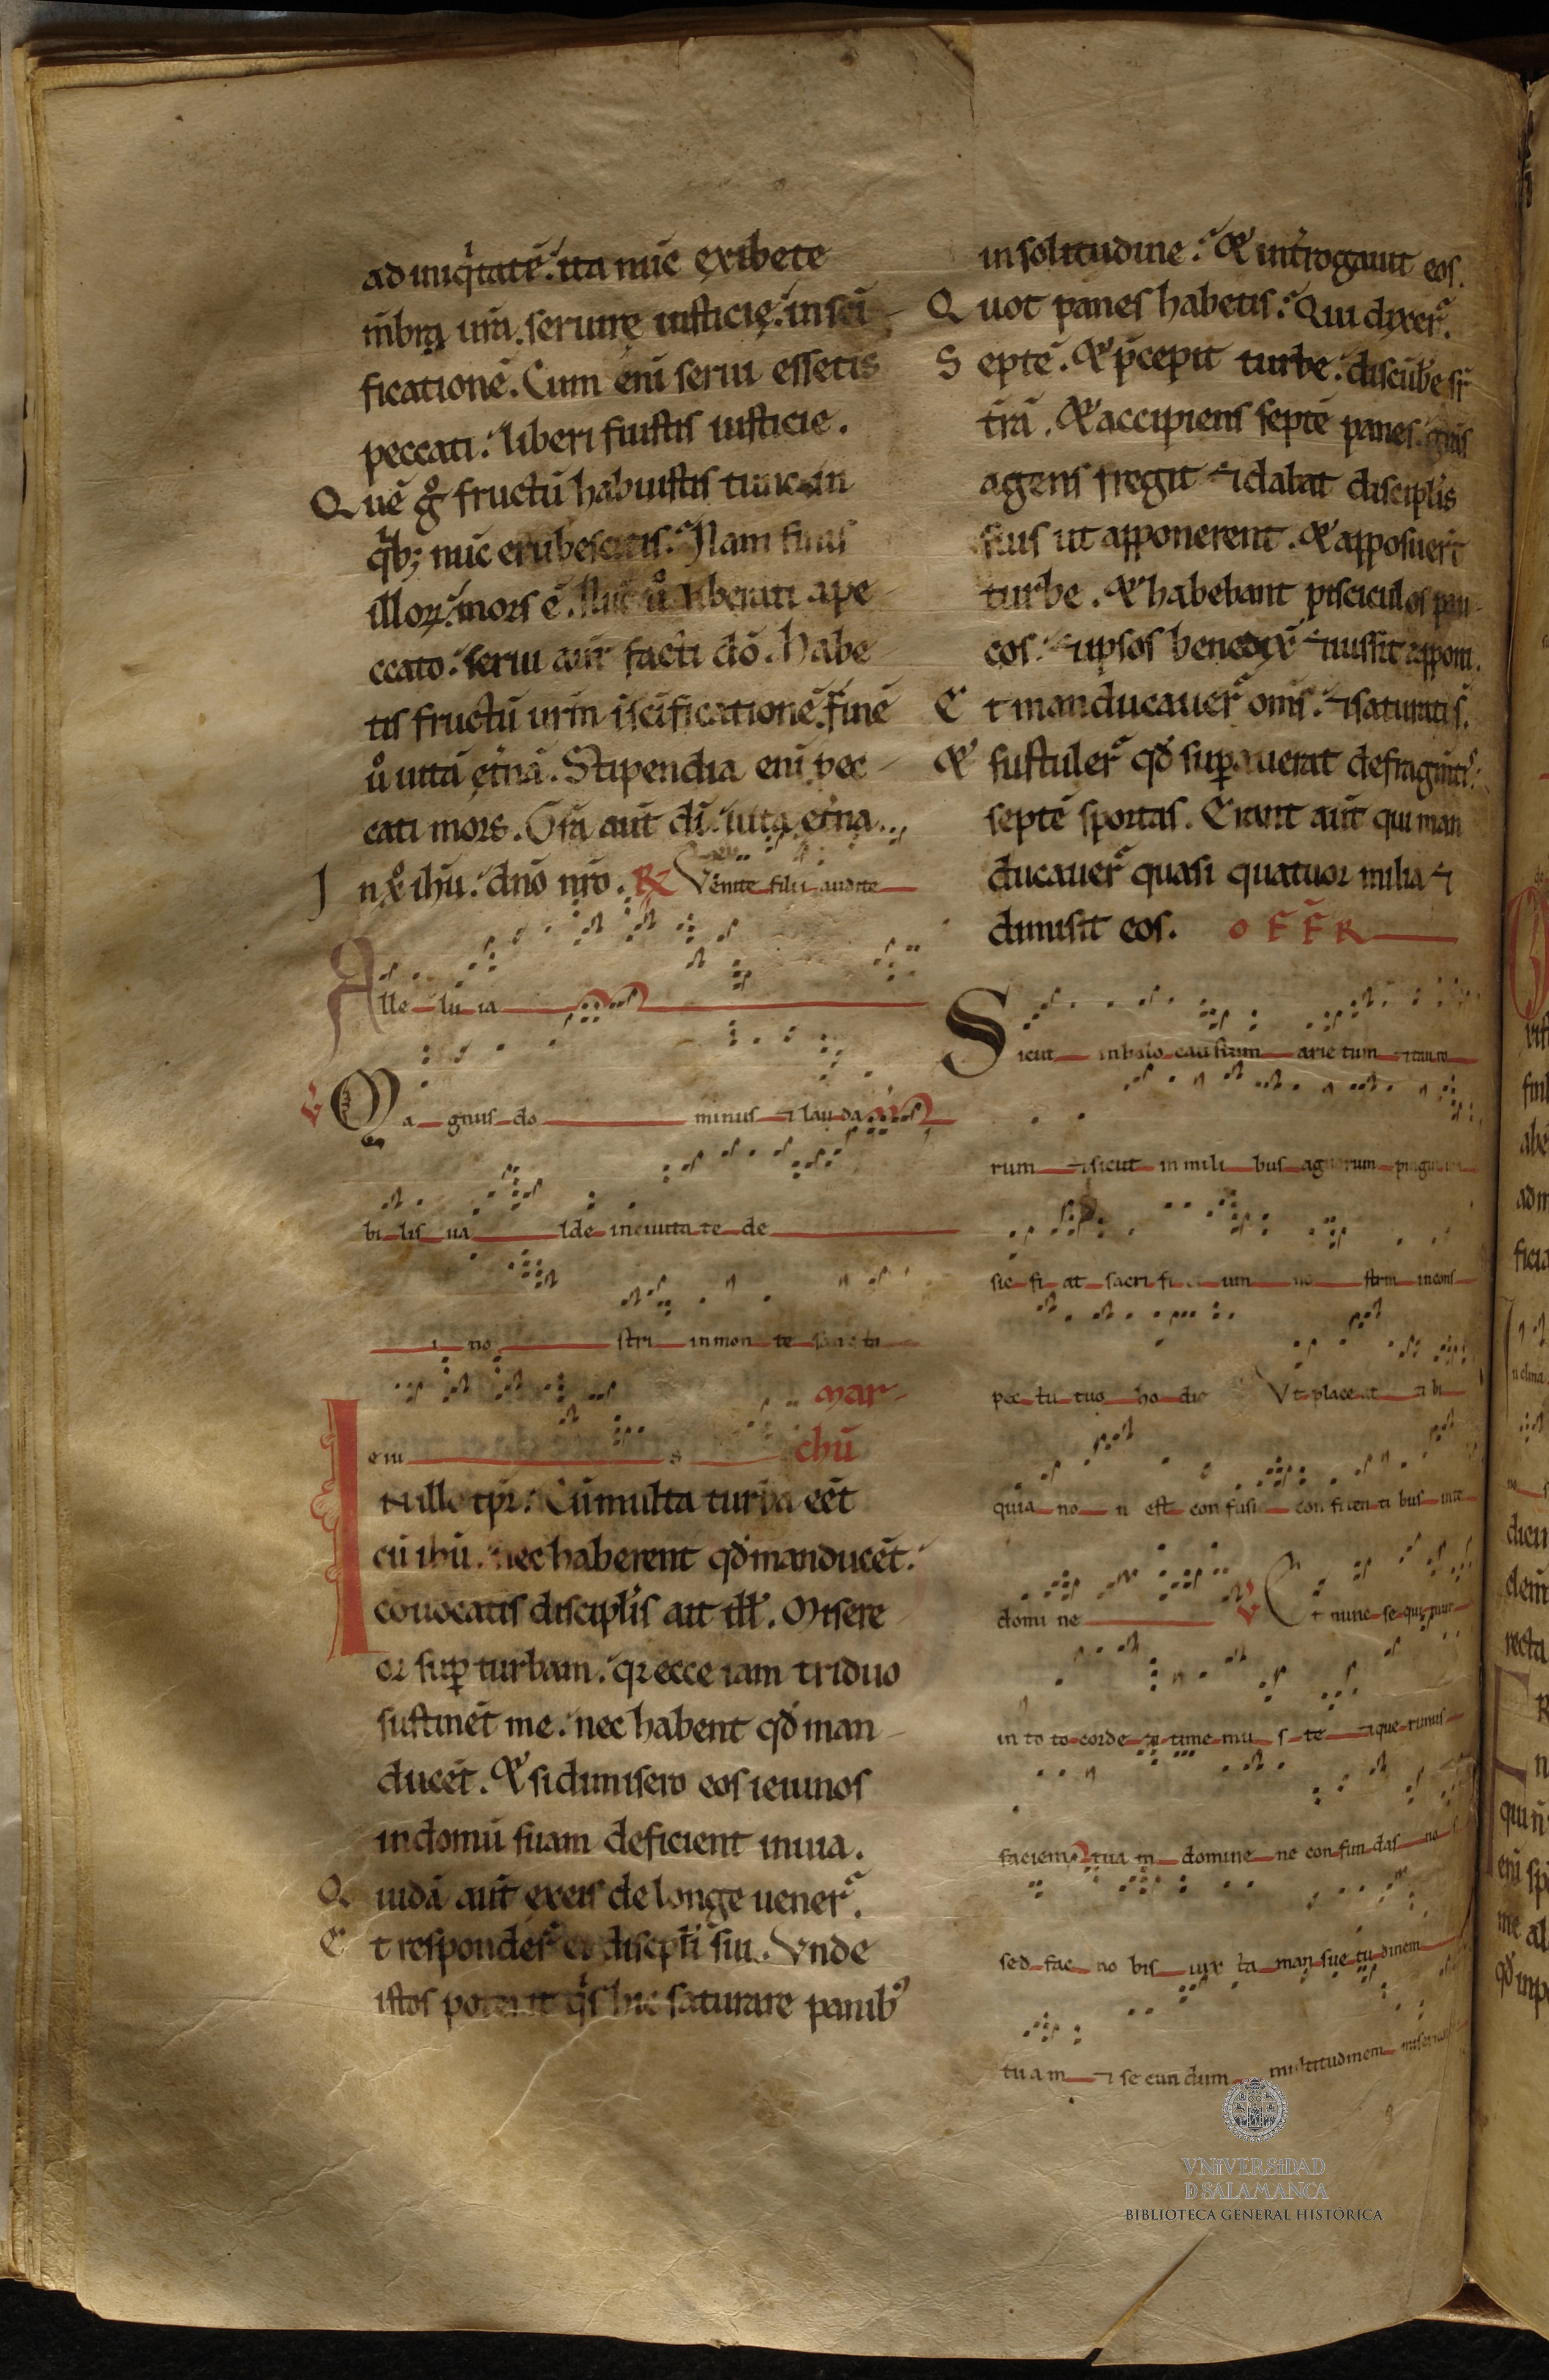 ad iniq̇tatē. ita nūc exibete
m̄bra ur̄a. seruire iusticie. in sc̄i
ficationē. Cum eni serui essetis
peccati. liberi fuistis iusticie.
Quē g̊ fructū habuistis tunc in
q̇b; nūc erubescitis. Nam finis
illoꝝ. mors ē. Nūc ů liberati a pe
ccato. serui aut̄ facti dō. habe
tis fructū ur̄m i sc̄ificationē. finē
ů uitā et̄nā. Stipendia eni pec
cati mors. Gr̄a aut̄ dī. uita et̄na
In xp̊ ihū. dn̄o nr̄o. ℟ Venite filii audite
Alle lu ia
℣ Ma gnus do minus ⁊ lauda
bi lis ua lde in ciuita te de
i no stri in mon te sanc ti
eiu s
Mar
chū
In illo tp̄r. Cū multa turba eēt
cū ihū. nec haberent qđ manducēt.
conuocatis discipl̄is ait ill̄. Misere
or suꝑ turbam. qꝛ ecce iam triduo
sustinēt me. nec habent qđ man
ducēt. Et si dimisero eos ieiunos
in domū suam deficient in uia.
Quidā aut̄ ex eis de longe uener̄.
Et responder̄ ei discipl̄i sui. Vnde
istos poterit q̇s hic saturare panibꝰ
in solitudine. Et int̄rogauit eos.
Quot panes habetis. Qui dixer̄.
Septē. Et p̄cepit turbe. discūbe sr̄
tr̄ā. Et accipiens septē panes. gr̄as
agens fregit ⁊ dabat discipl̄is
suis ut apponerent. Et apposuer̄t
turbe. Et habebant pisciculos pau
cos. ⁊ ipsos benedix̄ ⁊ iussit apponi.
Et manducauer̄ om̄s. ⁊ saturati s̄.
Et sustuler̄ qđ suꝑauerat de fragm̄tis
septē sportas. Erant aut̄ qui man
ducauer̄ quasi quatuor milia ⁊
dimisit eos. OFFR
Sicut in holo caustum arie tum ⁊ tauro
rum ⁊ sicut in mili bus agnorum pinguium
sic fi at sacri fi ci um no strm in cons
pec tu tuo ho die Vt place at ti bi
quia no n est con fusi o con fiden ti bus in te
domi ne ℣ Et nunc se qui mur
in to to corde ⁊ time mu s te ⁊ que rimus
faciem tua m domine ne con fun das no
sed fac no bis iux ta man sue tu dinem
tua m ⁊ se cun dum multitudinem
VNIVERSIDAD
D SALAMANCA
BIBLIOTECA GENERAL HISTÓRICA